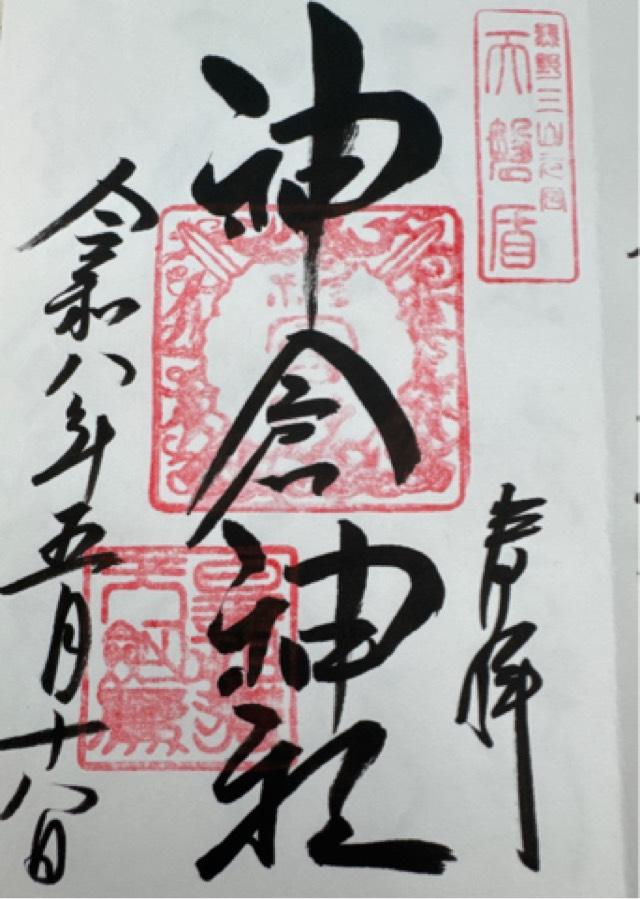 熊野三山之元
天磐盾
奉拝
神倉神社
令和八年五月十八日